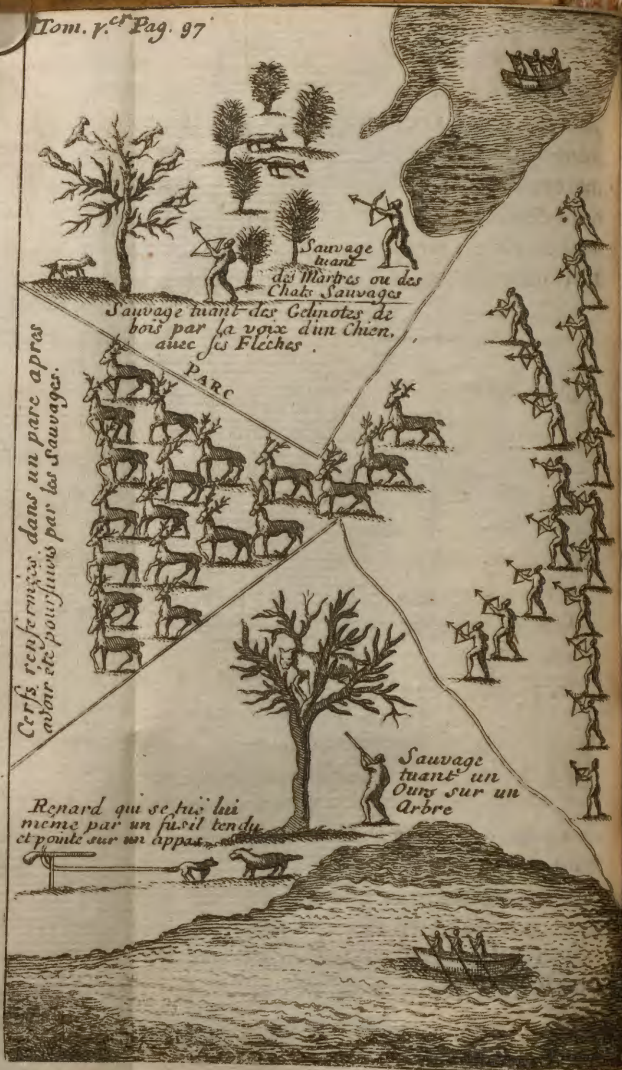 Tom. 1.er Pag. 97
Sauvage
tuant
des Martres ou des
Chats Sauvages
Sauvage tuant des Gelinotes de
bois par la voix d'un Chien,
avec ses Fleches.
PARC
Cerfs renfermées dans un parc apres
avoir eté poursuivis par les Sauvages.
Sauvage
tuant un
Ours sur un
Arbre
Renard qui se tuë lui
meme par un fusil tendu
et pointé sur un appas